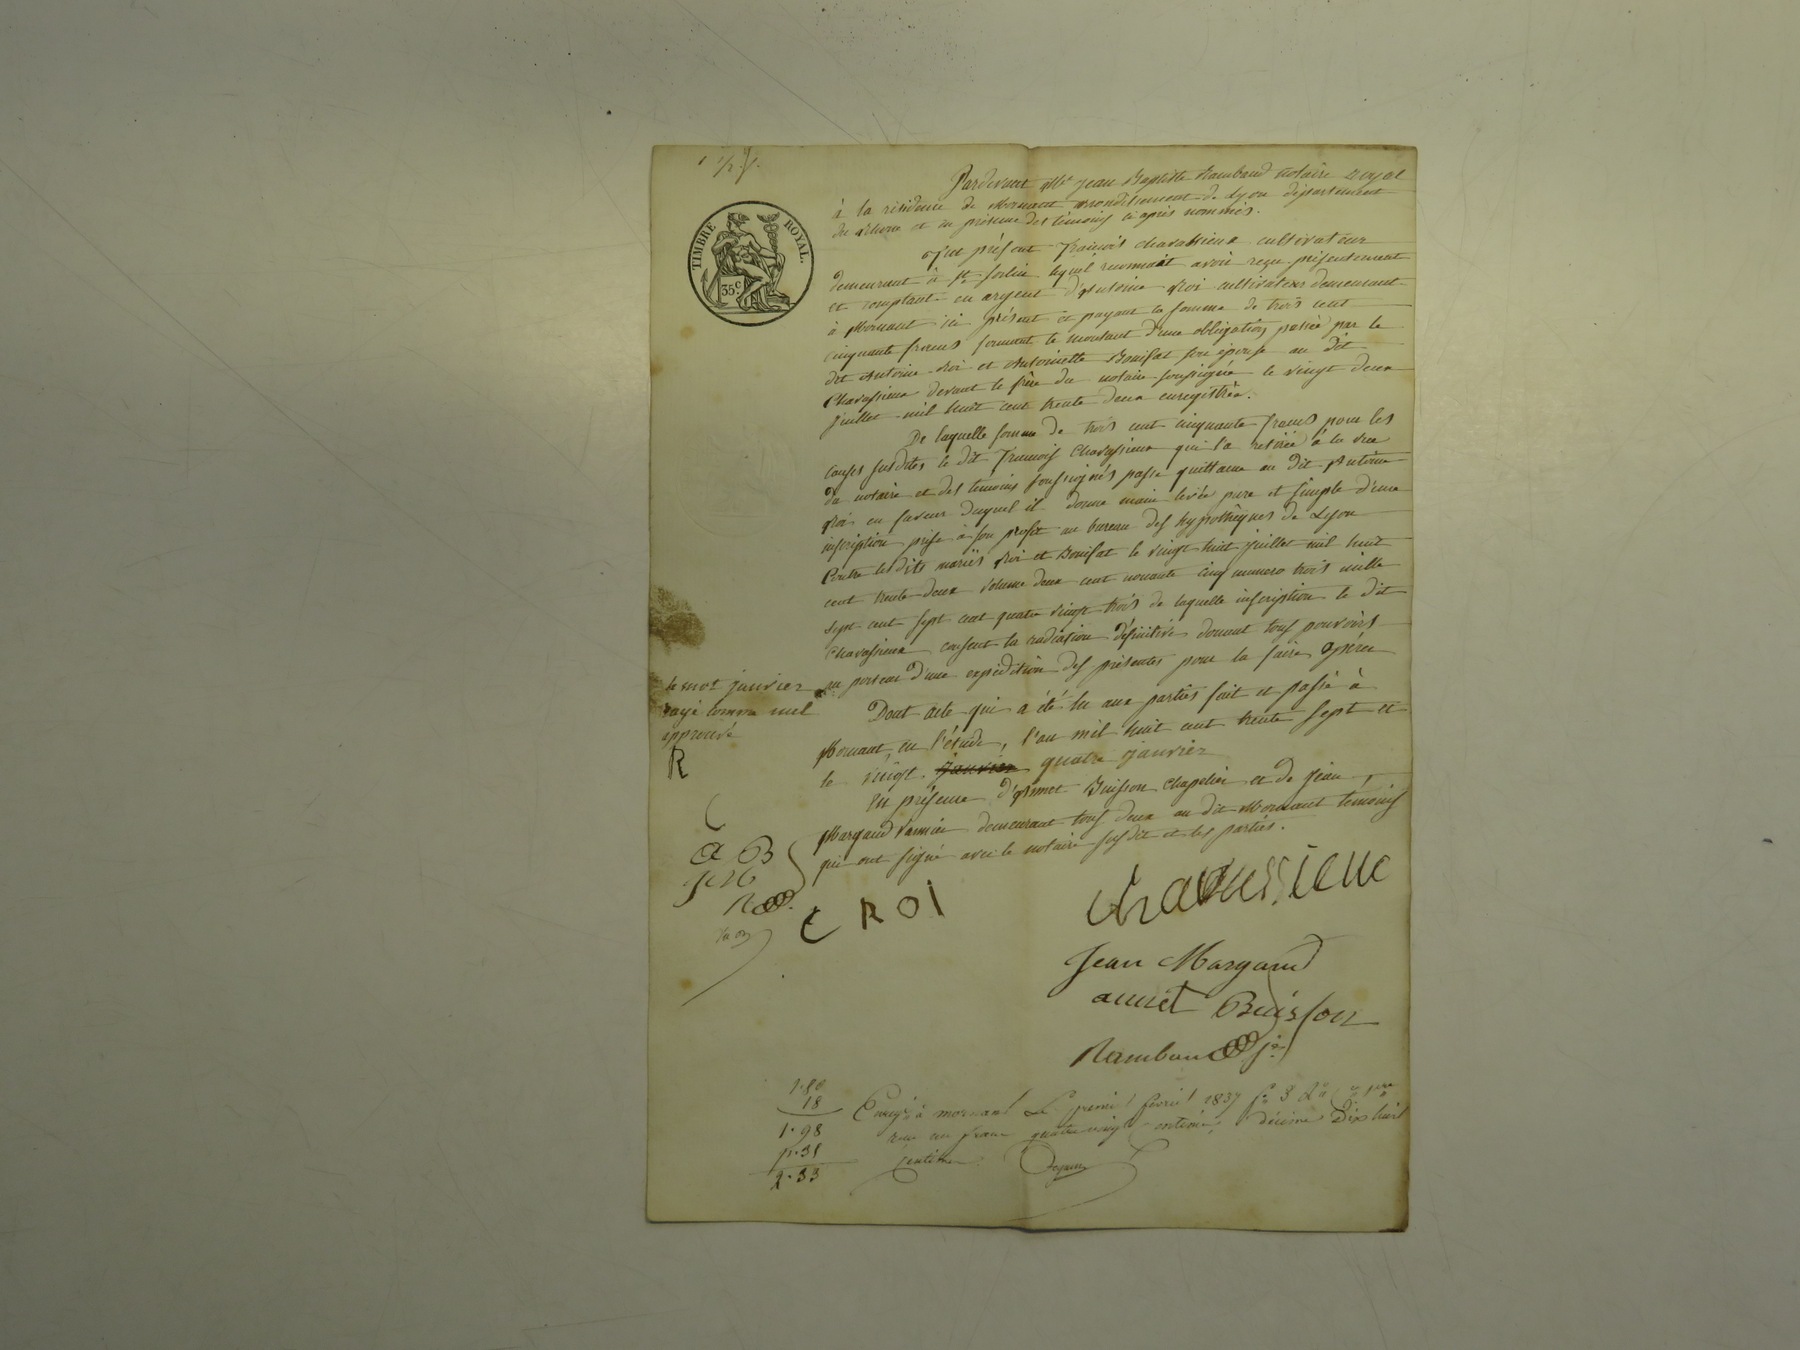 TIMBRE ROYAL.
35 c.
Pardevant Me Jean Baptiste Rambaud notaire royal
à la résidence de Mornant arrondissement de Lyon département
du Rhône et en présence des témoins ci après nommés.
fut présent François Chavassieux cultivateur
demeurant à St Sorlin lequel reconnait avoir reçu présentement
et comptant en argent d'Antoine Roi cultivateur demeurant
à Mornant ici présent et payant la somme de trois cent
cinquante francs formant le montant d'une obligation passée par le
dit Antoine Roi et Antoinette Bonifat son épouse au dit
Chavassieux devant le frère du notaire soussigné le vingt deux
juillet mil huit cent trente deux enregistrée.
De laquelle somme de trois cent cinquante francs pour les
causes susdites le dit François Chavassieux qui l'a retirée à la vue
du notaire et des temoins soussignés passe quittance au dit Antoine
Roi en faveur duquel il donne main levée pure et simple d'une
inscription prise à son profit au bureau des hypothèques de Lyon
Contre lesdits mariés Roi et Bonifat le vingt huit juillet mil huit
cent trente deux volume deux cent nonante cinq numero trois mille
sept cent sept cent quatre vingt trois de laquelle inscription le dit
Chavassieux consent la radiation définitive donnant tous pouvoirs
au porteur d'une expédition des présentes pour la faire opérer
Dont acte qui a été lu aux parties fait et passé à
Mornant, en l'étude, l'an mil huit cent trente sept et
le vingt janvier quatre janvier
En présence d'Annet Buisson chapelier et de Jean
Margaud vannier demeurant tous deux au dit Mornant temoins
qui ont signé avec le notaire susdit et les parties.
le mot janvier
rayé comme nul
approuvé
R
a B
R
C ROI
Chavassieux
Jean Margaud
annet Buisson
Rambaud je
1.80
18
1.98
2.33
Enregé à mornant le premier février 1837 fo 3
reçu un franc quatre vingt centimes, décime Dix huit
centimes